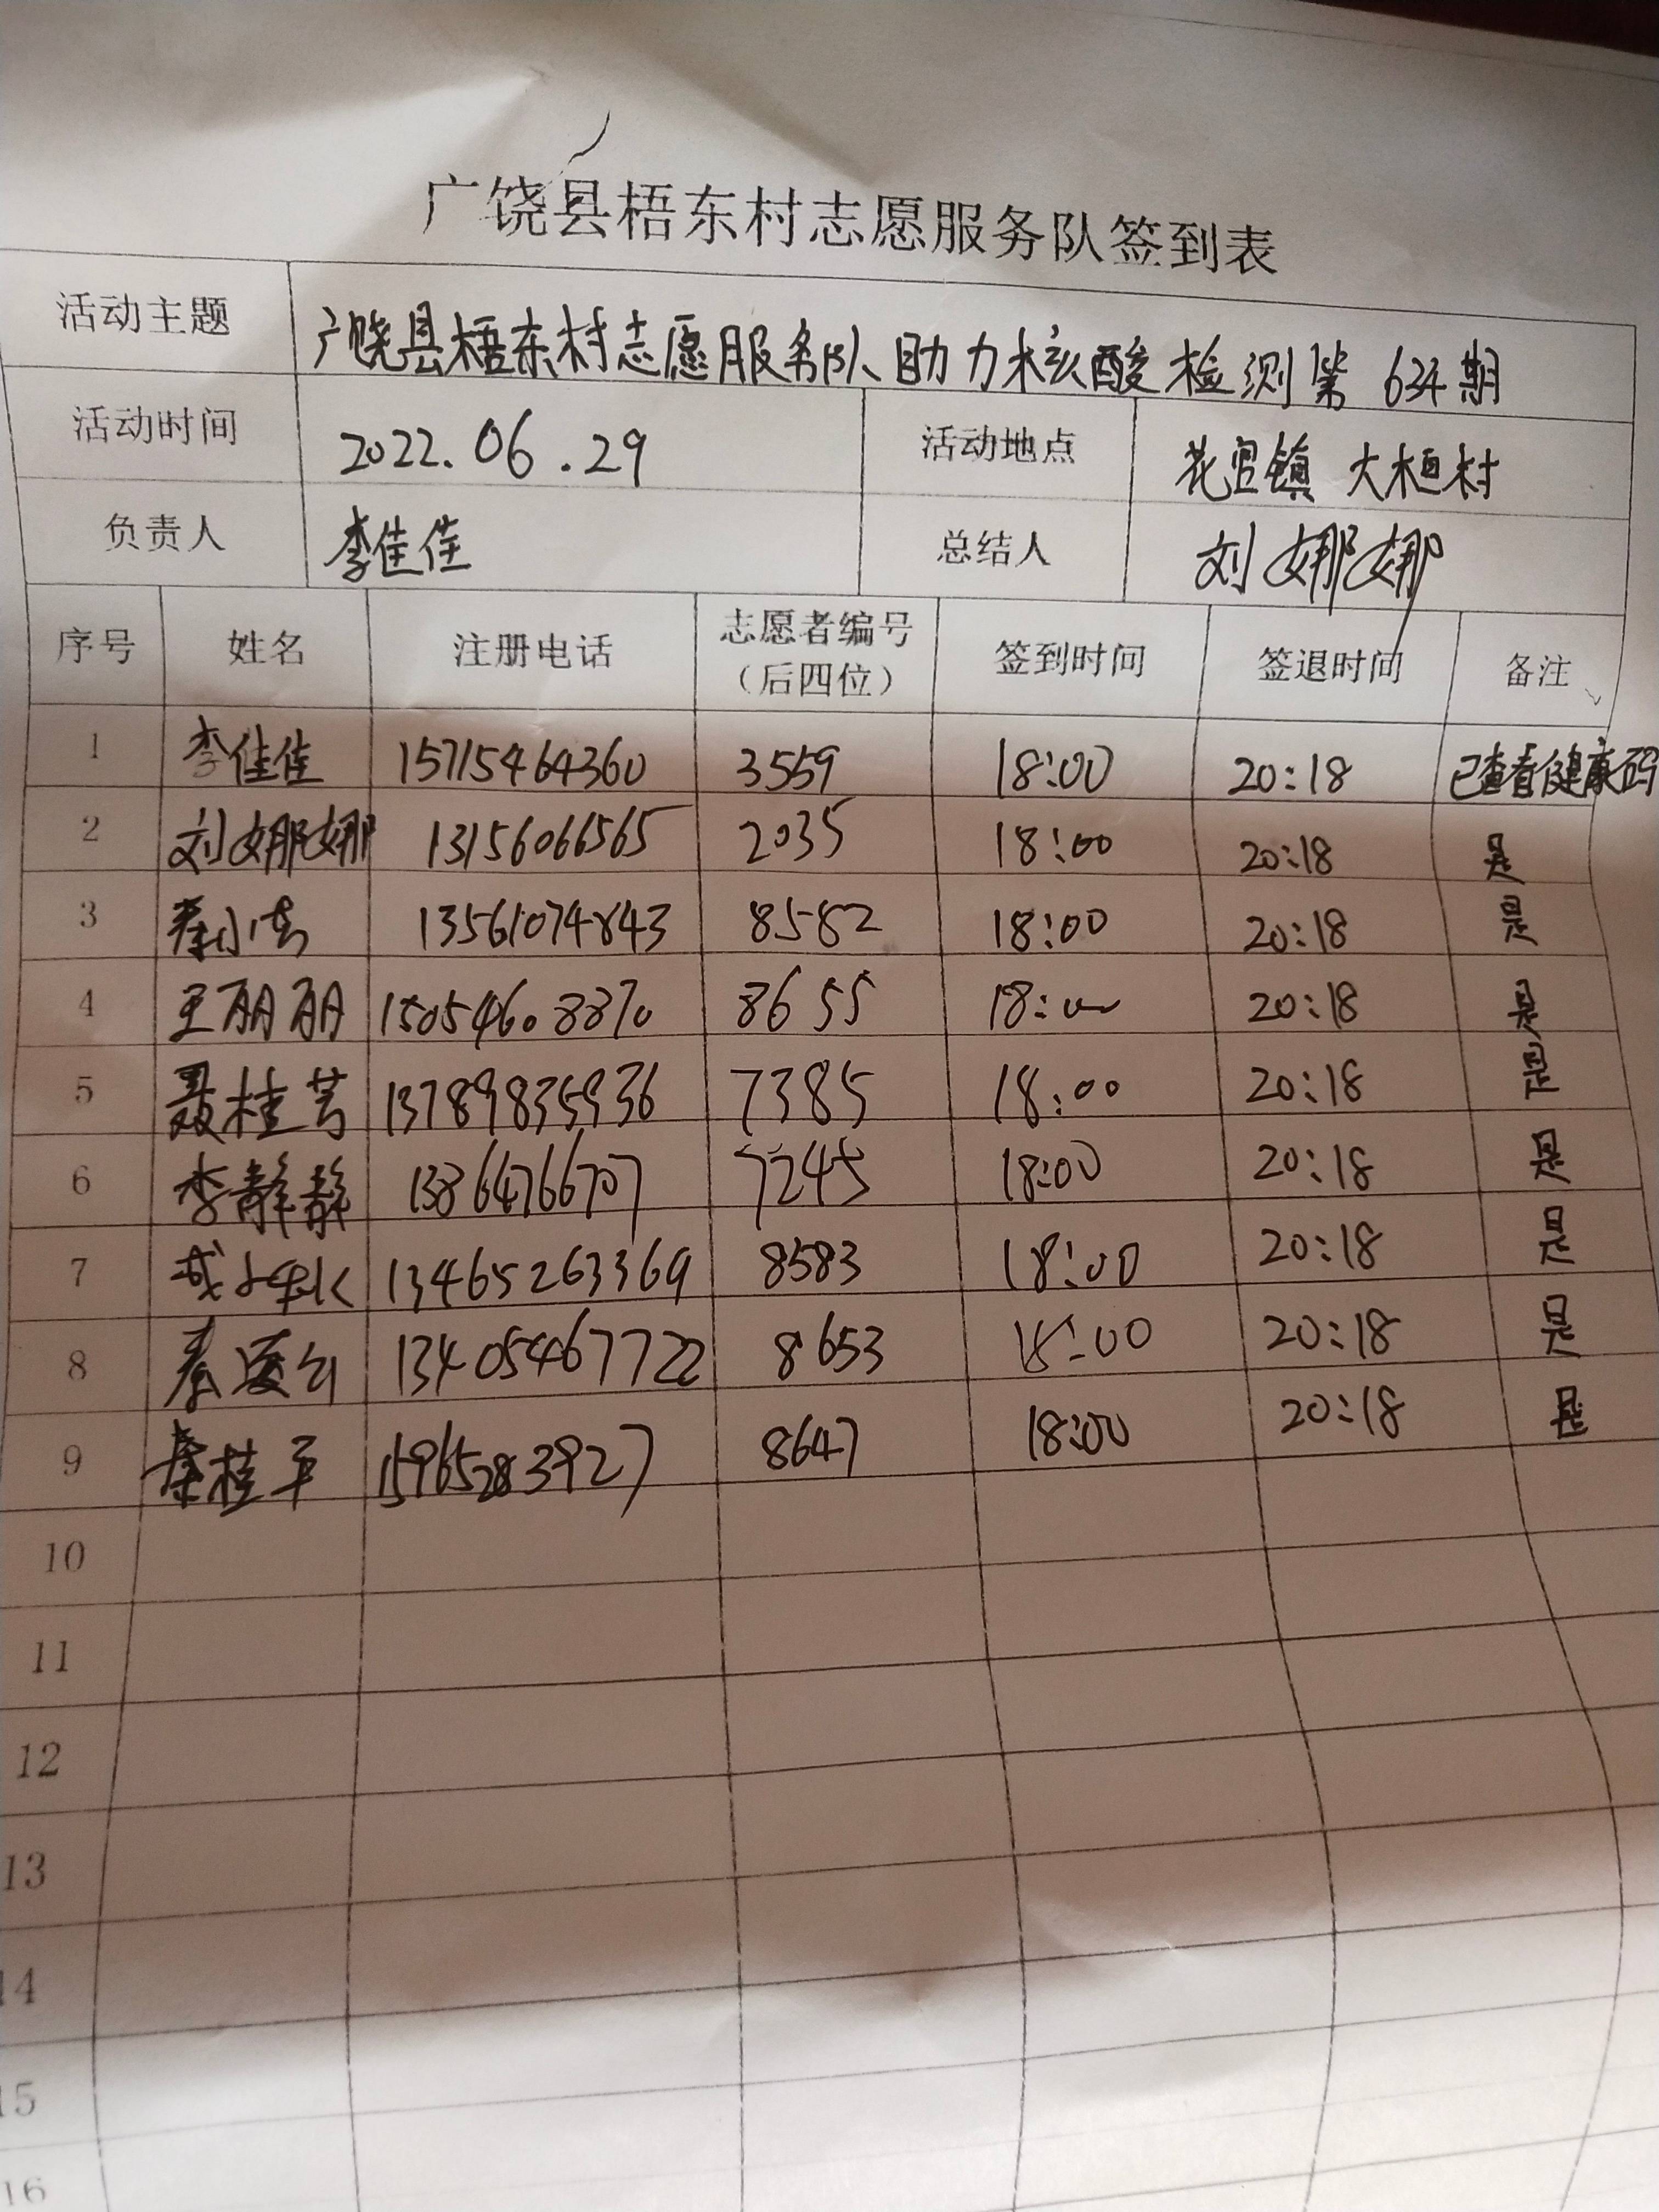 广饶县梧东村志愿服务队签到表
活动主题 广饶县梧东村志愿服务队助力核酸检测第634期
活动时间 2022.06.29 活动地点 花官镇 大桓村
负责人 李佳佳 总结人 刘娜娜
序号 姓名 注册电话 志愿者编号（后四位） 签到时间 签退时间 备注
1 李佳佳 15715464360 3559 18:00 20:18 已查看健康码
2 刘娜娜 13156066565 2035 18:00 20:18 是
3 13561074843 8582 18:00 20:18 是
4 王丽丽 15054608870 8655 18:00 20:18 是
5 聂桂芳 13789835936 7385 18:00 20:18 是
6 李静静 13864766707 7245 18:00 20:18 是
7 13465263369 8583 18:00 20:18 是
8 13405467722 8653 18:00 20:18 是
9 秦桂平 15965283927 8647 18:00 20:18 是
10
11
12
13
14
15
16